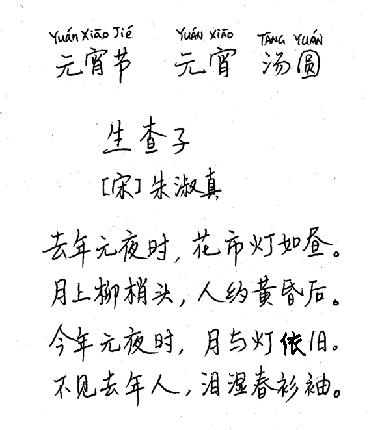 Yuán Xiāo Jié YUÁN XIĀO TĀNG YUÁN
元宵节 元宵 汤圆
生查子
[宋]朱淑真
去年元夜时，花市灯如昼。
月上柳梢头，人约黄昏后。
今年元夜时，月与灯依旧。
不见去年人，泪湿春衫袖。